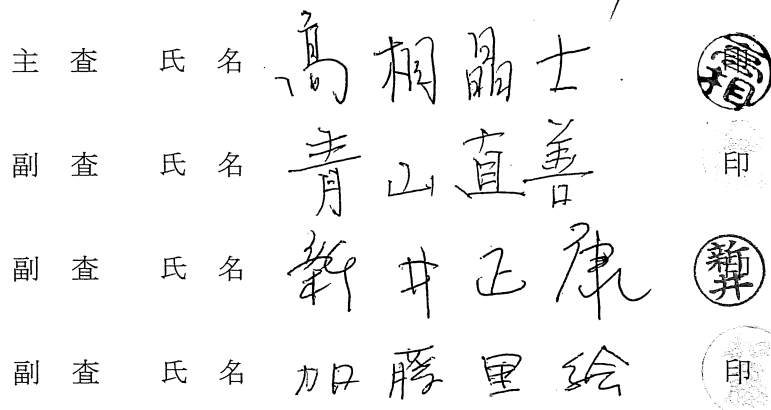 主査 氏名 高相晶士 高相
副査 氏名 青山直善 印
副査 氏名 新井正康 新井
副査 氏名 加藤里絵 印